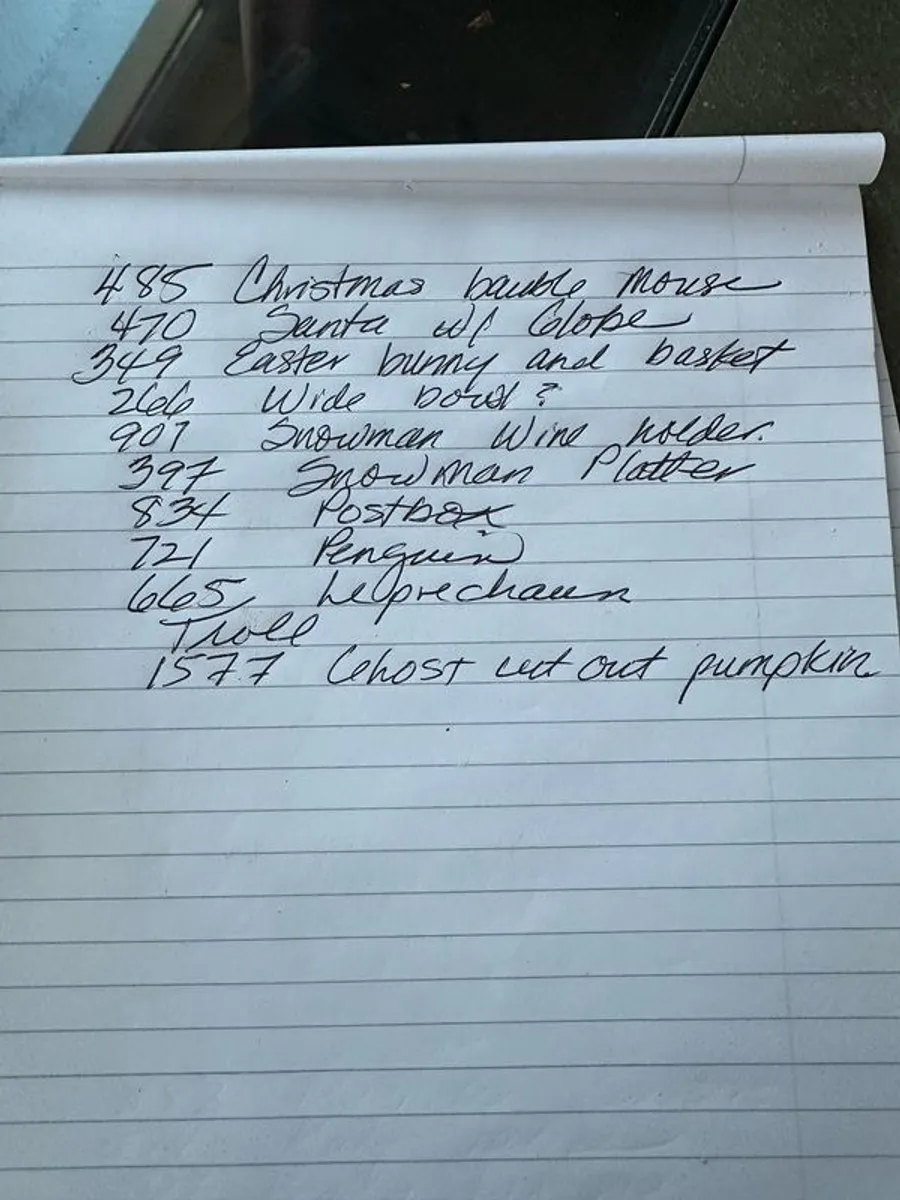 485 Christmas bauble mouse
470 Santa w/ Globe
349 Easter bunny and basket
266 Wide bowl?
907 Snowman Wine holder.
397 Snowman Platter
834 Postbox
721 Penguin
665 Leprechaun
Troll
1577 Ghost cut out pumpkin